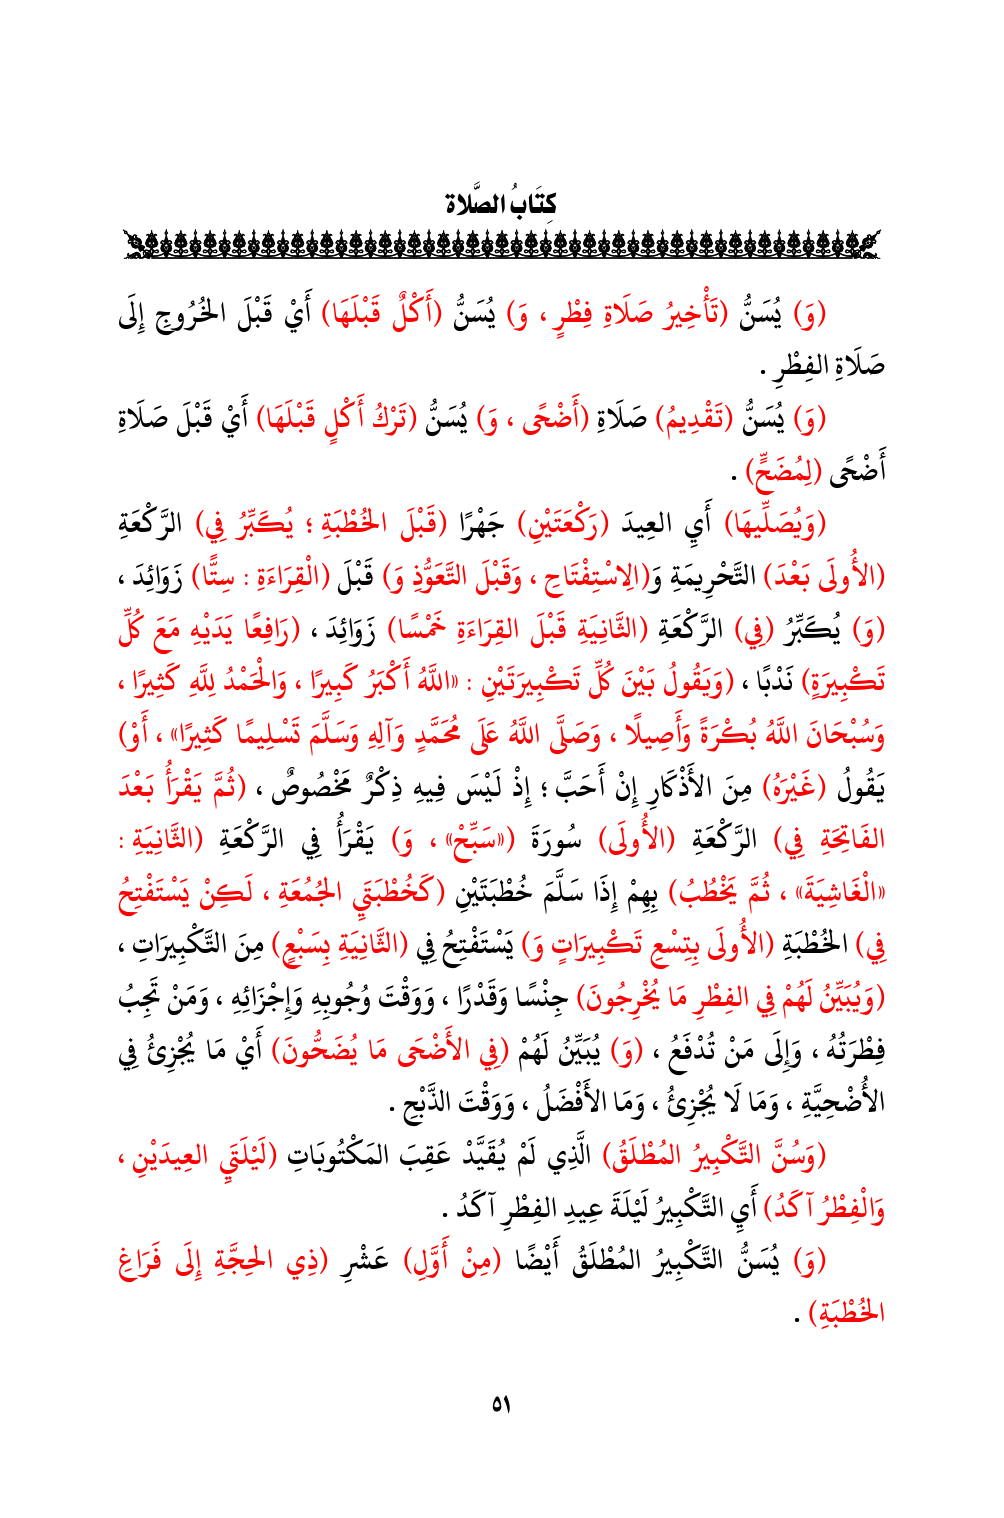 كِتَابُ الصَّلاة
(وَ) يُسَنُّ (تَأْخِيرُ صَلَاةِ فِطْرٍ ، وَ) يُسَنُّ (أَكْلٌ قَبْلَهَا) أَيْ قَبْلَ الخُرُوجِ إِلَى
صَلَاةِ الفِطْرِ .
(وَ) يُسَنُّ (تَقْدِيمُ) صَلَاةِ (أَضْحًى ، وَ) يُسَنُّ (تَرْكُ أَكْلٍ قَبْلَهَا) أَيْ قَبْلَ صَلَاةِ
أَضْحًى (لِمُضَحٍّ) .
(وَيُصَلِّيهَا) أَيِ العِيدَ (رَكْعَتَيْنِ) جَهْرًا (قَبْلَ الخُطْبَةِ ؛ يُكَبِّرُ فِي) الرَّكْعَةِ
(الأُولَى بَعْدَ) التَّحْرِيمَةِ وَ(الِاسْتِفْتَاحِ ، وَقَبْلَ التَّعَوُّذِ وَ) قَبْلَ (الْقِرَاءَةِ : سِتًّا) زَوَائِدَ ،
(وَ) يُكَبِّرُ (فِي) الرَّكْعَةِ (الثَّانِيَةِ قَبْلَ القِرَاءَةِ خَمْسًا) زَوَائِدَ ، (رَافِعًا يَدَيْهِ مَعَ كُلِّ
تَكْبِيرَةٍ) نَدْبًا ، (وَيَقُولُ بَيْنَ كُلِّ تَكْبِيرَتَيْنِ : «اللَّهُ أَكْبَرُ كَبِيرًا ، وَالْحَمْدُ لِلَّهِ كَثِيرًا ،
وَسُبْحَانَ اللَّهُ بُكْرَةً وَأَصِيلًا ، وَصَلَّى اللَّهُ عَلَى مُحَمَّدٍ وَآلِهِ وَسَلَّمَ تَسْلِيمًا كَثِيرًا» ، أَوْ)
يَقُولُ (غَيْرَهُ) مِنَ الأَذْكَارِ إِنْ أَحَبَّ ؛ إِذْ لَيْسَ فِيهِ ذِكْرٌ مَخْصُوصٌ ، (ثُمَّ يَقْرَأُ بَعْدَ
الفَاتِحَةِ فِي) الرَّكْعَةِ (الأُولَى) سُورَةَ («سَبِّحْ» ، وَ) يَقْرَأُ فِي الرَّكْعَةِ (الثَّانِيَةِ :
«الْغَاشِيَةَ» ، ثُمَّ يَخْطُبُ) بِهِمْ إِذَا سَلَّمَ خُطْبَتَيْنِ (كَخُطْبَتَيِ الجُمُعَةِ ، لَكِنْ يَسْتَفْتِحُ
فِي) الخُطْبَةِ (الأُولَى بِتِسْعِ تَكْبِيرَاتٍ وَ) يَسْتَفْتِحُ فِي (الثَّانِيَةِ بِسَبْعٍ) مِنَ التَّكْبِيرَاتِ ،
(وَيُبَيِّنُ لَهُمْ فِي الفِطْرِ مَا يُخْرِجُونَ) جِنْسًا وَقَدْرًا ، وَوَقْتَ وُجُوبِهِ وَإِجْزَائِهِ ، وَمَنْ تَجِبُ
فِطْرَتُهُ ، وَإِلَى مَنْ تُدْفَعُ ، (وَ) يُبَيِّنُ لَهُمْ (فِي الأَضْحَى مَا يُضَحُّونَ) أَيْ مَا يُجْزِئُ فِي
الأُضْحِيَّةِ ، وَمَا لَا يُجْزِئُ ، وَمَا الأَفْضَلُ ، وَوَقْتَ الذَّبْحِ .
(وَسُنَّ التَّكْبِيرُ المُطْلَقُ) الَّذِي لَمْ يُقَيَّدْ عَقِبَ المَكْتُوبَاتِ (لَيْلَتَيِ العِيدَيْنِ ،
وَالْفِطْرُ آكَدُ) أَيِ التَّكْبِيرُ لَيْلَةَ عِيدِ الفِطْرِ آكَدُ .
(وَ) يُسَنُّ التَّكْبِيرُ المُطْلَقُ أَيْضًا (مِنْ أَوَّلِ) عَشْرِ (ذِي الحِجَّةِ إِلَى فَرَاغِ
الخُطْبَةِ) .
٥١